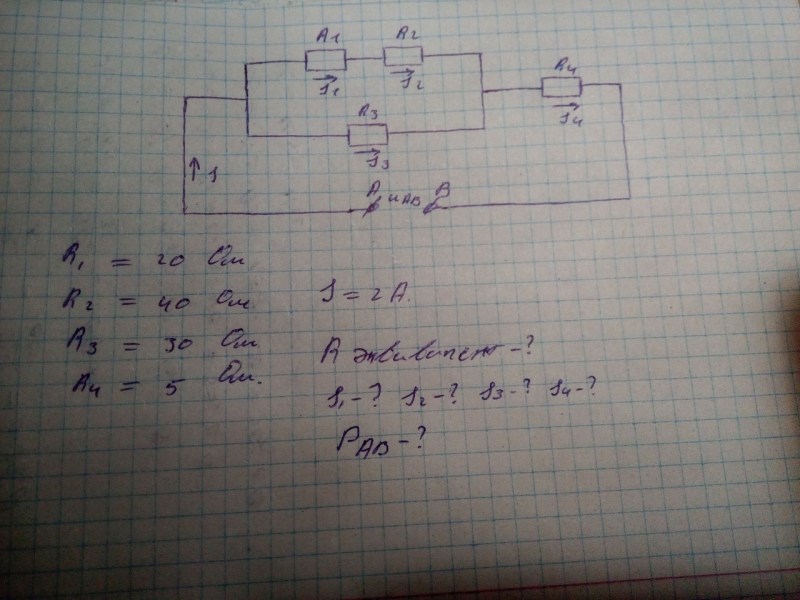 R1 R2
I1 I2
R4
I4
R3
I3
I
A UAB B
R1 = 20 Ом
R2 = 40 Ом
R3 = 30 Ом
R4 = 5 Ом.
I = 2 А.
R эквивалент - ?
I1 - ? I2 - ? I3 - ? I4 - ?
PAB - ?